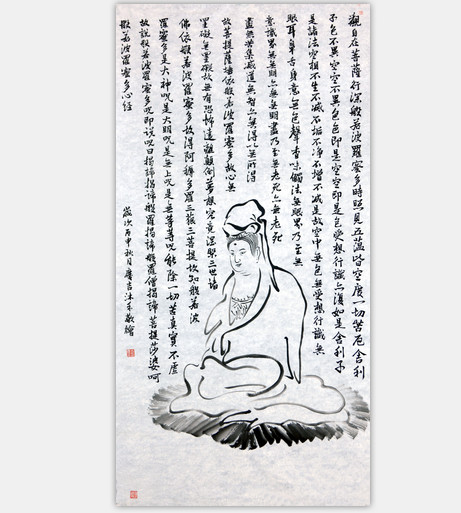 觀自在菩薩行深般若波羅蜜多時照見五蕴皆空度一切苦厄舍利
子色不異空空不異色色即是空空即是色受想行識亦復如是舍利子
是諸法空相不生不滅不垢不净不增不減是故空中無色無受想行識無
眼耳鼻舌身意無色聲香味觸法無眼界乃至無
意識界無無明亦無無明盡乃至無老死亦無老死
盡無苦集滅道無智亦無得以無所得
故菩提薩埵依般若波羅蜜多故心無
罣礙無罣礙故無有恐怖遠離顛倒夢想究竟涅槃三世諸
佛依般若波羅蜜多故得阿耨多羅三藐三菩提故知般若波
羅蜜多是大神咒是大明咒是無上咒是無等等咒能除一切苦真實不虛
故說般若波羅蜜多咒即說咒曰揭諦揭諦般羅揭諦般羅僧揭諦菩提莎婆呵
般若波羅蜜多心經
歲次丙申秋月廣吉沐手敬繪